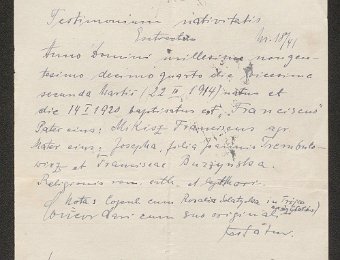 Testimonium nativitatis
Nr. 18/41
Anno Domini millesimo nongen-
tesimo decimo quarto die vicesima
secunda Martii (22 III 1914) natus et
die 14 I 1920 baptisatus est "Franciscus"
Pater eius: Franciscus agr.
Mater eius: Josepha, filia Joannis Trembulo-
wicz et Franciscae Burzyńska.
Religionis rom. cath. et
Nota: Copul. cum Rosalia in
cum suo originali
testatur.